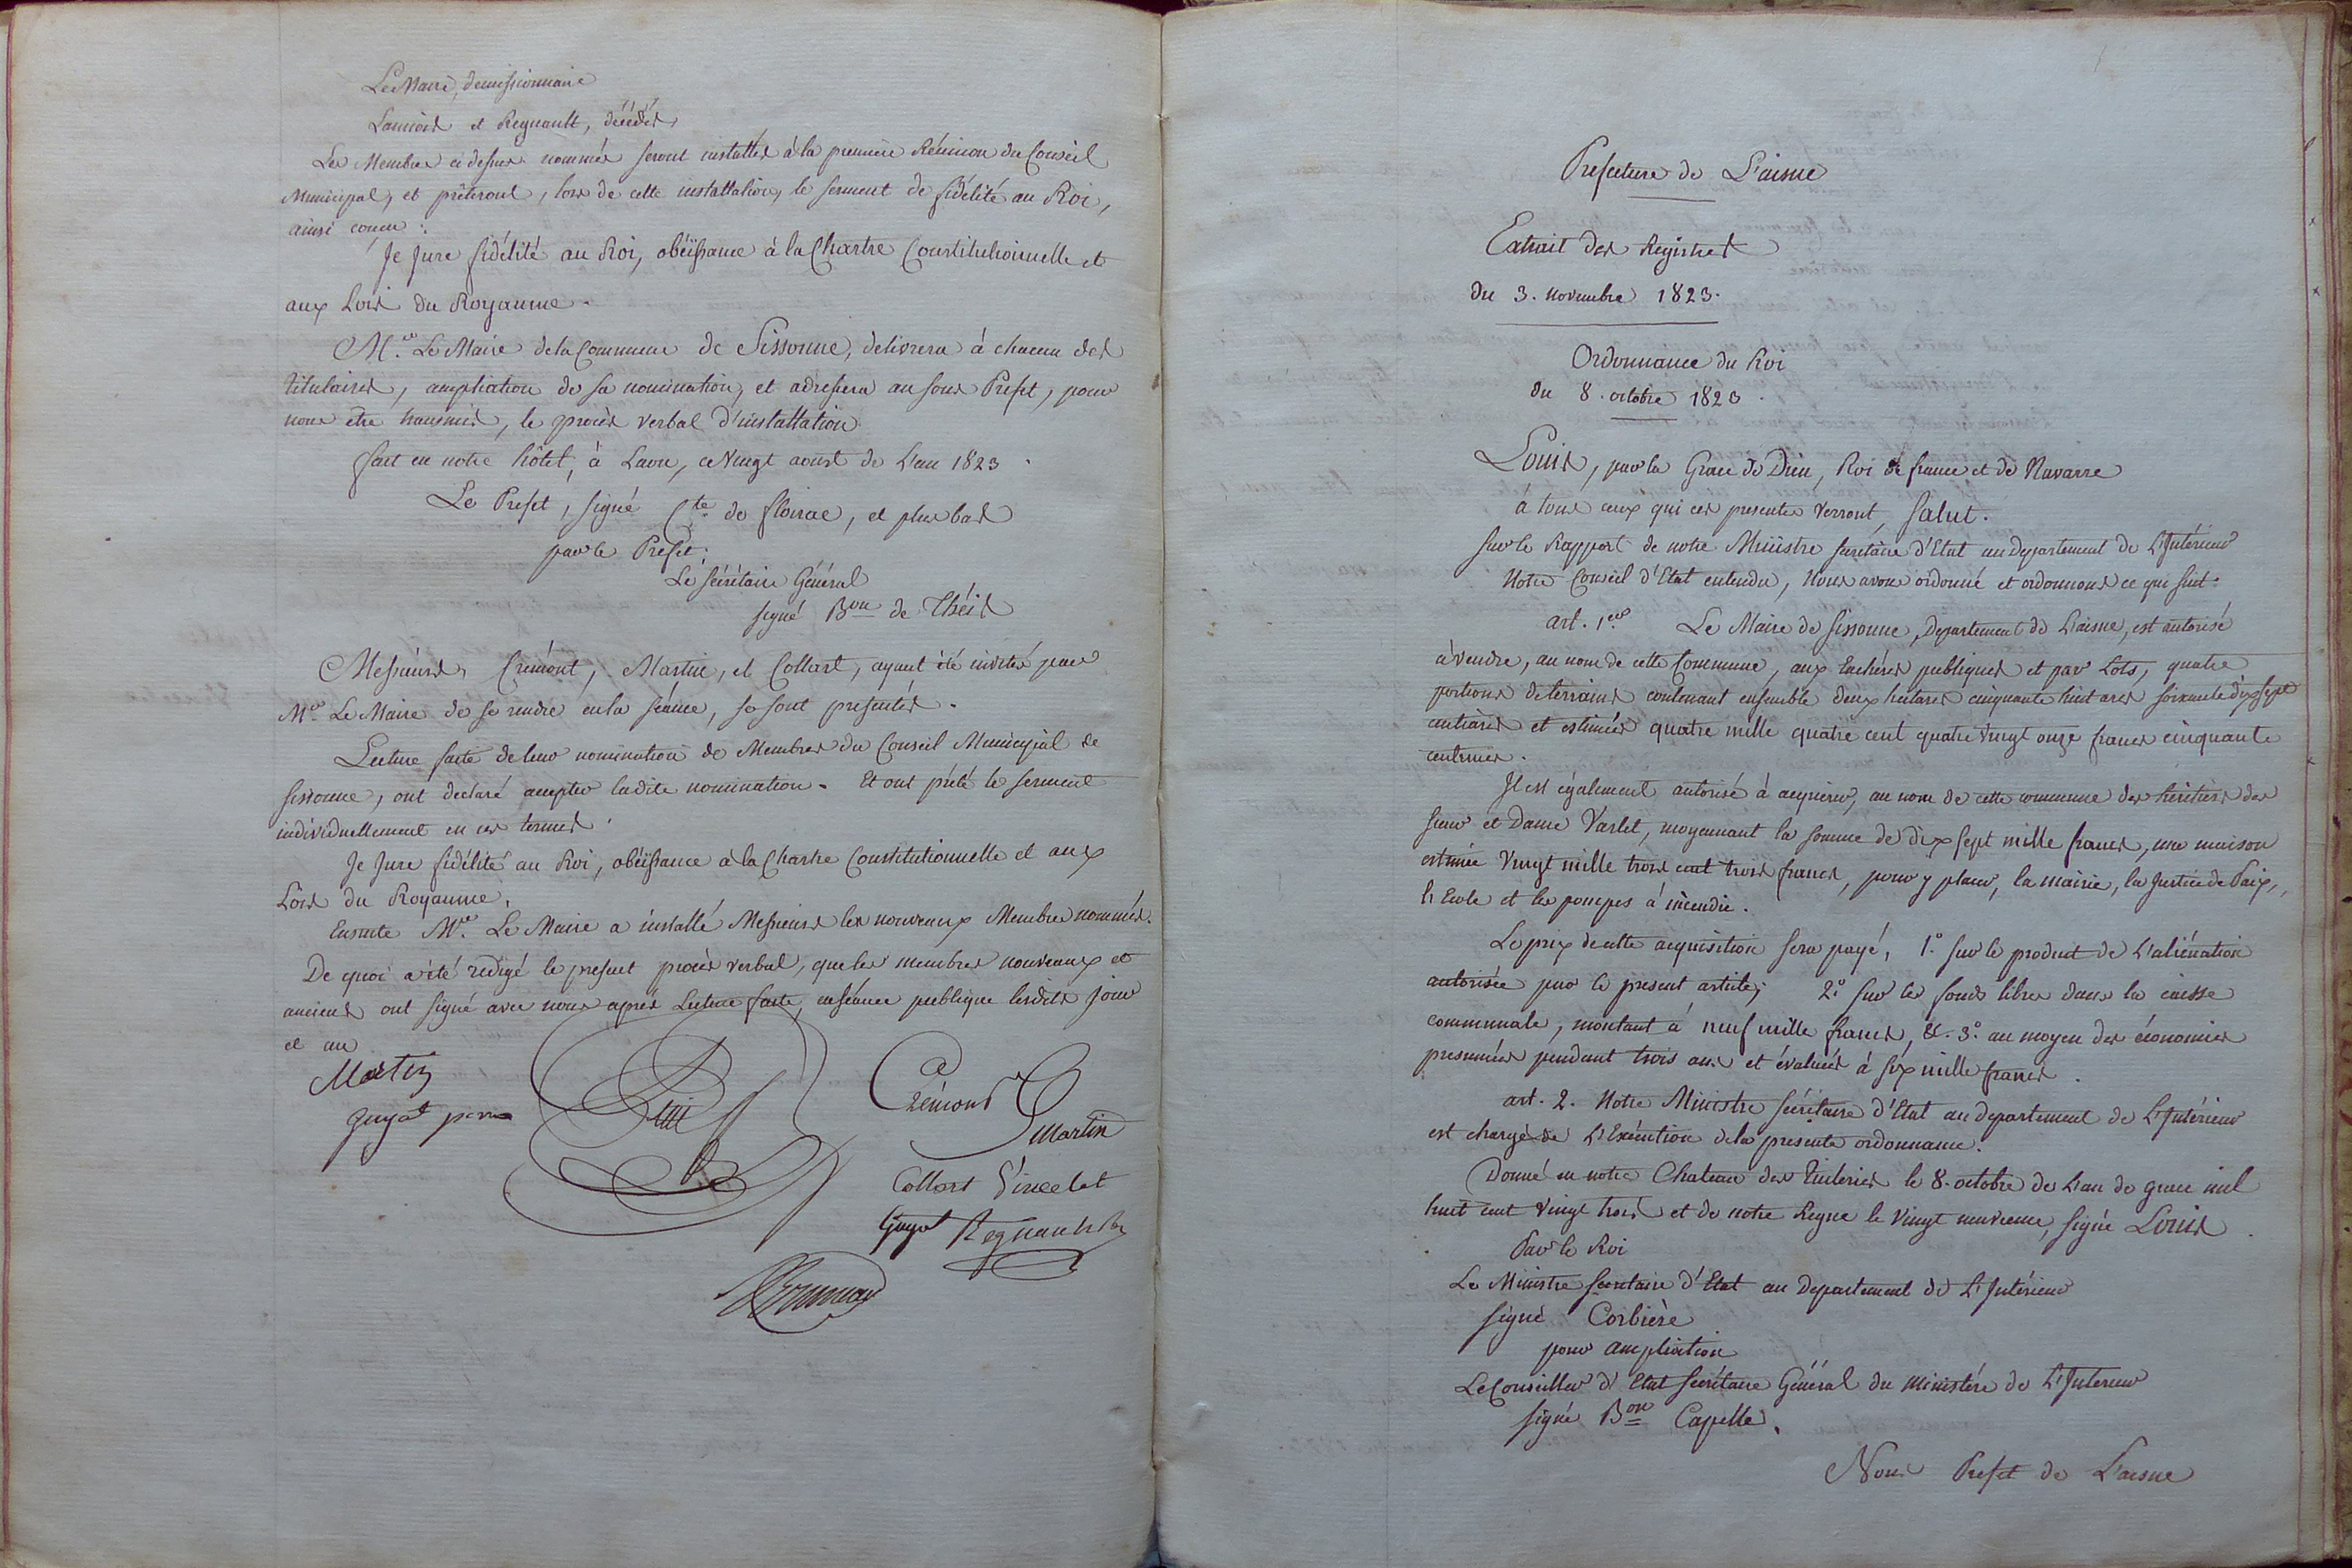 Le Maire, demissionnaire
et Regnault, décédés,
Les Membres ci dessus nommés seront installés à la premiere Réunion du Conseil
Municipal, et prêteront, lors de cette installation, le serment de fidélité au Roi,
ainsi conçu :
Je Jure fidélité au Roi, obéissance à la Chartre Constitutionnelle et
aux Lois du Royaume.
Mr. Le Maire de la Commune de Sissonne, delivrera à chacun des
titulaires, ampliation de sa nomination, et adressera au sous Prefet, pour
nous être transmis, le procès verbal d'installation.
fait en notre hôtel, à Laon, ce Vingt aoust de L'an 1823.
Le Prefet, signé Cte de floirac, et plus bas
par le Prefet:
Le Sécrétaire Général
signé Bon de Théis
Messieurs, Crémont, Martin, et Collart, ayant été invités par
Mr. Le Maire de se rendre en la séance, se sont presentés.
Lecture faite de leur nomination de Membres du Conseil Municipal de
Sissonne, ont declaré accepter ladite nomination. Et ont prêté le serment
individuellement en ces termes.
Je Jure fidélité au Roi, obéissance à la Chartre Constitutionnelle et aux
Lois du Royaume.
Ensuite Mr. Le Maire a installé Messieurs les nouveaux Membres nommés.
De quoi a été redigé le present procès verbal, que les membres nouveaux et
anciens ont signé avec nous après Lecture faite, en séance publique lesdits jour
et an
Martin
Crémont
guyot
Martin
Collart Vincelet
Guyot Regnault
Prefecture de L'aisne
Extrait des Registres
du 3. Novembre 1823.
Ordonnance du Roi
du 8. octobre 1823.
Louis, par la Grace de Dieu, Roi de france et de Navarre
à tous ceux qui ces presentes verront, Salut.
Sur le Rapport de notre Ministre Secrétaire d'Etat au departement de L'Intérieur
Notre Conseil d'Etat entendu, Nous avons ordonné et ordonnons ce qui suit.
art. 1er. Le Maire de Sissonne, Departement de L'aisne, est autorisé
à vendre, au nom de cette Commune, aux Encheres publiques et par Lots, quatre
portions de terrains contenant ensemble deux hectares cinquante huit ares soixante dix sept
centiares et estimées quatre mille quatre cent quatre Vingt onze francs cinquante
centimes.
Il est également autorisé à acquerir, au nom de cette commune des héritiers des
sieur et Dame Varlet, moyennant la somme de dix sept mille francs, une maison
estimée Vingt mille trois cent trois francs, pour y placer, la mairie, la Justice de Paix,
L'Ecole et les pompes à incendie.
Le prix de cette acquisition sera payé, 1.° Sur le produit de L'aliénation
autorisée par le present article; 2.° Sur les fonds libres dans la caisse
communale, montant à neuf mille francs, &. 3.° au moyen des économies
presumées pendant trois ans et évaluées à six mille francs.
art. 2. Notre Ministre Secrétaire d'Etat au departement de L'Intérieur
est chargé de L'Exécution de la presente ordonnance.
Donné en notre Chateau des Tuileries le 8. octobre de L'an de grace mil
huit cent Vingt trois et de notre Regne le Vingt neuvieme, signé Louis.
Par le Roi
Le Ministre Secretaire d'Etat au Departement de L'Intérieur
signé Corbière
pour ampliation
Le Conseiller d'Etat Secrétaire Général du Ministére de L'Interieur
signé Bon Capelle.
Nous Prefet de L'aisne